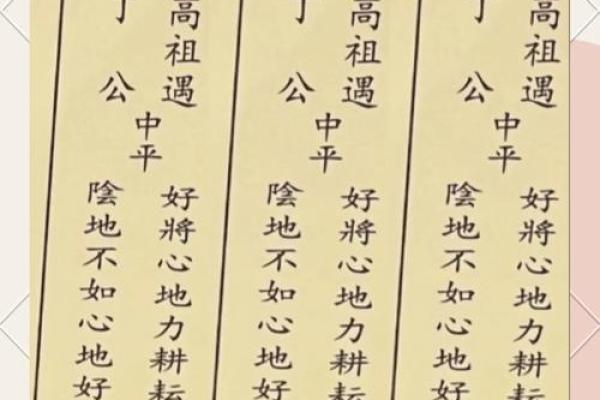 高祖遇
公
中平
好將心地力耕耘
陰地不如心地好
高祖遇
公
中平
好將心地力耕耘
陰地不如心地好
高祖遇
公
中平
好將心地力耕耘
陰地不如心地好